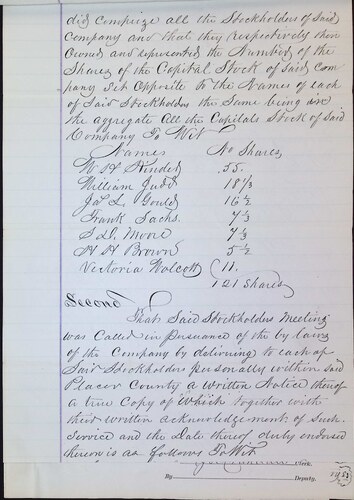 did comprize all the Stockholders of Said
Company and that they respectively then
Owned and represented the Number of the
Shares of the Capital Stock of Said Com
pany Set Opposite to the Names of each
of Said Stockholders the Same being in
the aggregate all the Capital Stock of Said
Company To Wit
Names No Shares
W H 55.
William Judd 18 1/3
Jas L. Gould 16 1/2
Frank Sachs. 7 1/3
S. D. Moore 7 1/3
H H Brown 5 1/2
Victoria Wolcott 11.
121 Shares
Second
That Said Stockholders Meeting
was Called in pursuance of the by laws
of the Company by delivering to each of
Said Stockholders personally within said
Placer County a Written Notice thereof
a true Copy of Which together with
their written acknowledgement of Such
Service and the Date thereof duly endorsed
hereon is as follows To Wit
Clerk.
By Deputy.